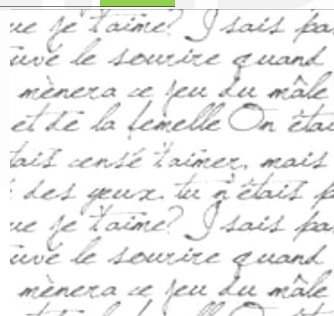 ue je t'aime? J sais pas
uvé le sourire quand
mènera ce jeu du mâle
et de la femelle On étai
tait censé t'aimer, mais
des yeux. tu n'étais p
ue je t'aime? J sais pas
uvé le sourire quand
mènera ce jeu du mâle